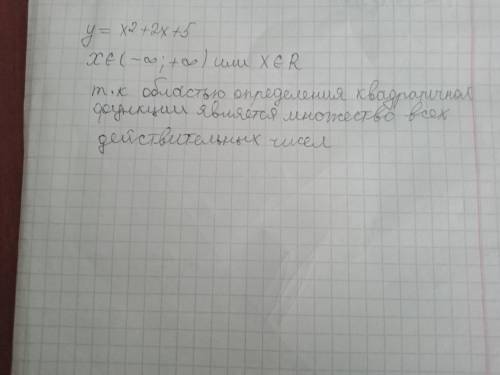 y = x² + 2x + 5
x ∈ (-∞; +∞) или x ∈ R
т.к областью определения квадратичной
функции является множество всех
действительных чисел